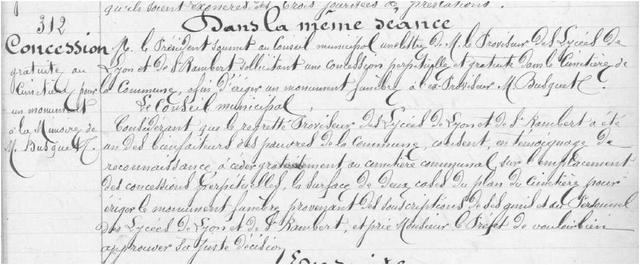 qu'ils soient exonérés des trois journées de prestations.
312
Dans la même séance
Concession
gratuite au
Cimetière pour
un monument
à la Mémoire de
M. Busquet
M. le Président soumet au Conseil municipal une lettre de M. le Proviseur des Lycées de
Lyon et de St Rambert sollicitant une concession perpétuelle et gratuite dans le Cimetière de
la Commune, afin d'ériger un monument funèbre à l'ex-Proviseur M. Busquet.
Le Conseil municipal,
Considérant, que le regretté Proviseur des Lycées de Lyon et de St Rambert a été
un des bienfaiteurs des pauvres de la Commune, consent, en témoignage de
reconnaissance, à céder gratuitement au cimetière communal, sur l'emplacement
des concessions perpétuelles, la surface de deux cases du plan du cimetière pour
ériger le monument funèbre, provenant des souscriptions de ses amis et du Personnel
des Lycées de Lyon et de St Rambert, et prie Monsieur le Préfet de vouloir bien
approuver sa juste décision.